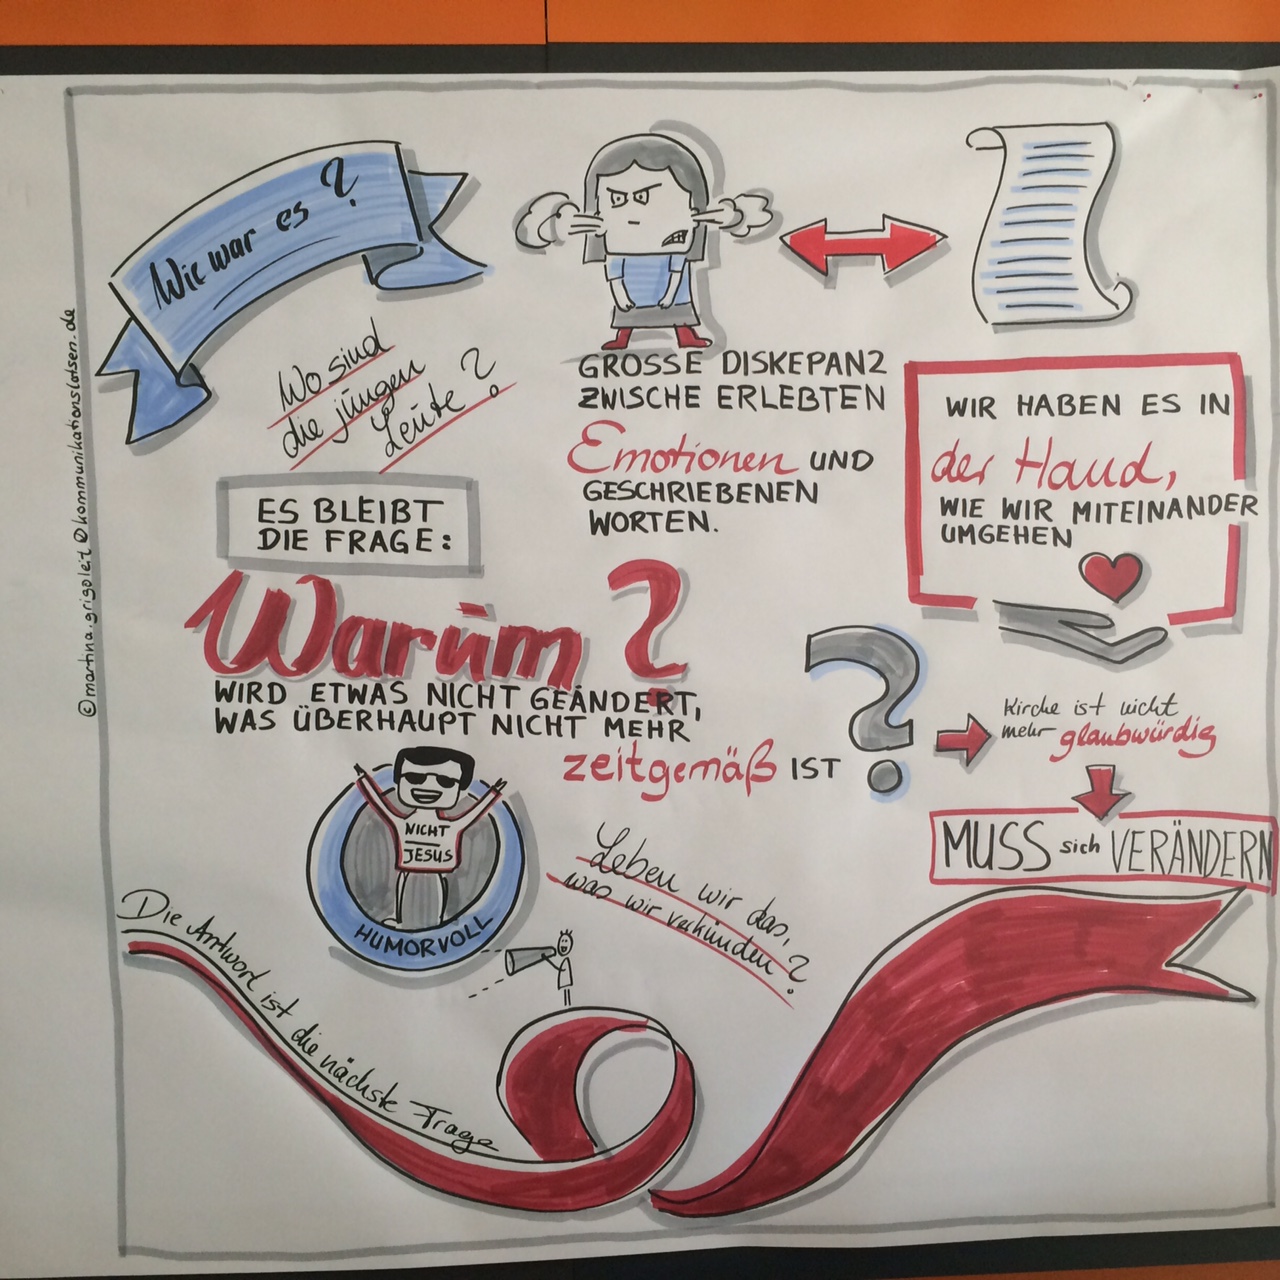 Wie war es?
Wo sind
die jungen
Leute?
GROSSE DISKEPANZ
ZWISCHE ERLEBTEN
Emotionen UND
GESCHRIEBENEN
WORTEN.
WIR HABEN ES IN
der Hand,
WIE WIR MITEINANDER
UMGEHEN
ES BLEIBT
DIE FRAGE:
Warum?
WIRD ETWAS NICHT GEÄNDERT,
WAS ÜBERHAUPT NICHT MEHR
zeitgemäß IST
?
Kirche ist nicht
mehr glaubwürdig
MUSS sich VERÄNDERN
NICHT
JESUS
HUMORVOLL
Leben wir das,
was wir verkünden?
Die Antwort ist die nächste Frage
©martina.grigoleit@kommunikationslotsen.de